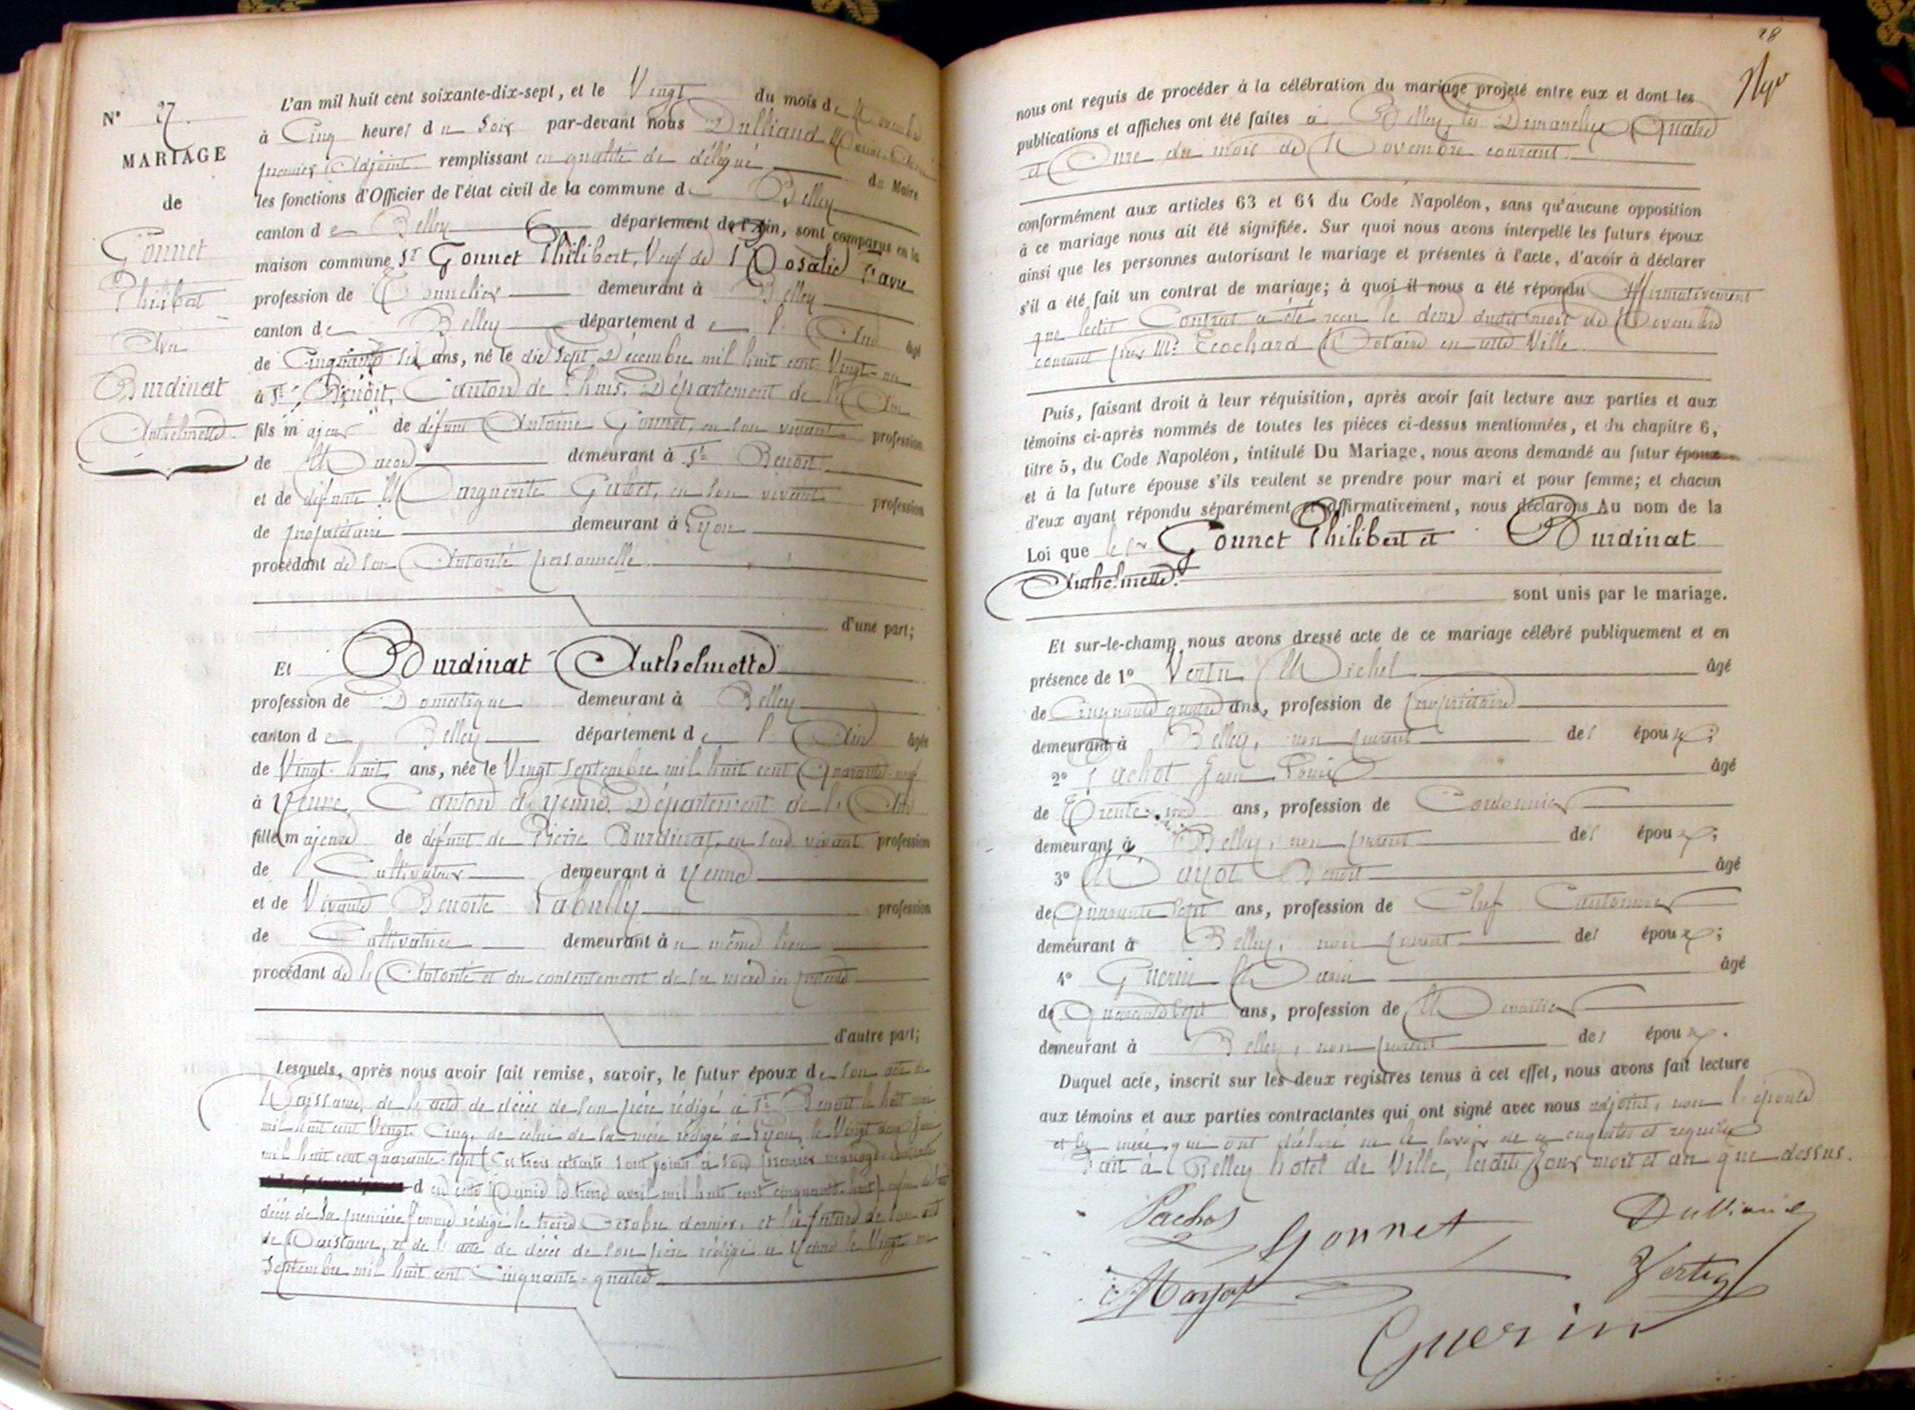 N° 27
MARIAGE
de
Gonnet
Philibert
Burdinat
Anthelmette
L'an mil huit cent soixante-dix-sept, et le Vingt du mois de Novembre
à Cinq heures du Soir par-devant nous Dulliand
premier Adjoint remplissant en qualité de délégué du Maire
les fonctions d'Officier de l'état civil de la commune de Belley
canton de Belley département de l'Ain, sont comparus en la
maison commune Sr Gonnet Philibert, Veuf de Rosalie
profession de Tonnelier demeurant à Belley
canton de Belley département de l'Ain âgé
de Cinquante six ans, né le dix sept Décembre mil huit cent Vingt-un
à St Benoit, Canton de Lhuis, Département de l'Ain
fils majeur de défunt Antoine Gonnet, en son vivant profession
de Maçon demeurant à St Benoit
et de défunte Marguerite en son vivant profession
de propriétaire demeurant à Lyon
procédant de son Autorité personnelle
d'une part;
Et Burdinat Anthelmette
profession de Domestique demeurant à Belley
canton de Belley département de l'Ain âgée
de Vingt-huit ans, née le Vingt Septembre mil huit cent Quarante-neuf
à Yenne, Canton de Yenne, Département de l'Ain
fille majeure de défunt de Pierre Burdinat, en son vivant profession
de Cultivateur demeurant à Yenne
et de Vivante Benoite Labully profession
de Cultivatrice demeurant au même lieu
procédant de l'Autorité et du consentement de sa mère ici présente
d'autre part;
Lesquels, après nous avoir fait remise, savoir, le futur époux de son acte de
Naissance, de l'acte de décès de son père rédigé à St Benoit le huit mai
mil huit cent Vingt Cinq, de celui de sa mère rédigé à Lyon, le Vingt deux Juin
mil huit cent quarante-sept (Ces trois extraits sont joints à son premier mariage
le treize avril mil huit cent cinquante-huit)
décès de sa première femme rédigé le treize Octobre dernier, et la future de son acte
de Naissance, et de l'acte de décès de son père rédigé à Yenne le Vingt un
Septembre mil huit cent Cinquante-quatre
28
nous ont requis de procéder à la célébration du mariage projeté entre eux et dont les
publications et affiches ont été faites à Belley, les Dimanches Quatre
et Onze du mois de Novembre courant
conformément aux articles 63 et 64 du Code Napoléon, sans qu'aucune opposition
à ce mariage nous ait été signifiée. Sur quoi nous avons interpellé les futurs époux
ainsi que les personnes autorisant le mariage et présentes à l'acte, d'avoir à déclarer
s'il a été fait un contrat de mariage; à quoi il nous a été répondu Affirmativement
que ledit Contrat a été reçu le deux dudit mois de Novembre
courant par Me Ecochard Notaire en cette Ville
Puis, faisant droit à leur réquisition, après avoir fait lecture aux parties et aux
témoins ci-après nommés de toutes les pièces ci-dessus mentionnées, et du chapitre 6,
titre 5, du Code Napoléon, intitulé Du Mariage, nous avons demandé au futur époux
et à la future épouse s'ils veulent se prendre pour mari et pour femme; et chacun
d'eux ayant répondu séparément et affirmativement, nous déclarons Au nom de la
Loi que le Sr Gonnet Philibert et Burdinat
Anthelmette
sont unis par le mariage.
Et sur-le-champ nous avons dressé acte de ce mariage célébré publiquement et en
présence de 1° Michel âgé
de Cinquante quatre ans, profession de propriétaire
demeurant à Belley, non parent des époux;
2° Pachot Jean Louis âgé
de Trente ans, profession de Cordonnier
demeurant à Belley, non parent des époux;
3° Mayot Benoit âgé
de Quarante Sept ans, profession de Chef Cantonnier
demeurant à Belley, non parent des époux;
4° Guerin Marin âgé
de Quarante Sept ans, profession de Menuisier
demeurant à Belley, non parent des époux.
Duquel acte, inscrit sur les deux registres tenus à cet effet, nous avons fait lecture
aux témoins et aux parties contractantes qui ont signé avec nous adjoint, non l'épouse
et sa mère, qui ont déclaré ne le savoir de ce enquises et requises
Fait à Belley hotel de Ville, lesdits jour mois et an que dessus.
Pachot Gonnet Dulliand
Mayot
Guerin